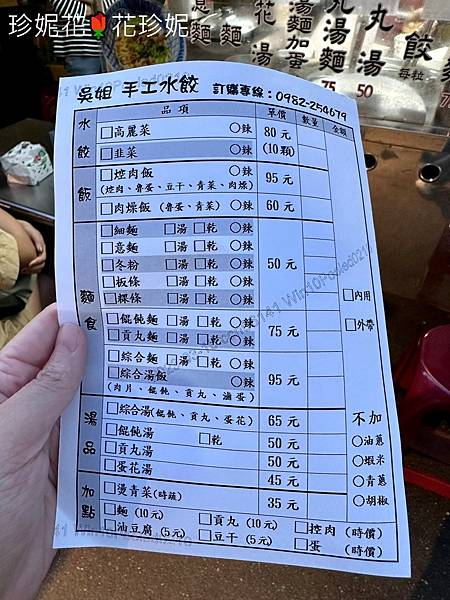 珍妮花🌷花珍妮
意麵
花湯
湯麵加蛋
丸湯麵
丸湯
餃
每粒
75
50
吳姐 手工水餃 訂購專線：0982-254679
品項 單價 數量 金額
水餃
□高麗菜 ○辣 80元
□韭菜 ○辣 (10顆)
飯
□焢肉飯 ○辣 95元
(焢肉、魯蛋、豆干、青菜、肉燥)
□肉燥飯 (魯蛋、青菜) ○辣 60元
麵食
□細麵 □湯 □乾 ○辣
□意麵 □湯 □乾 ○辣
□冬粉 □湯 □乾 ○辣 50元
□板條 □湯 □乾 ○辣
□粿條 □湯 □乾 ○辣
□內用
□餛飩麵 □湯 □乾 ○辣 75元
□外帶
□貢丸麵 □湯 □乾 ○辣
□綜合麵 □湯 □乾 ○辣
□綜合湯飯 ○辣 95元
(肉片、餛飩、貢丸、滷蛋)
湯品
□綜合湯(餛飩、貢丸、蛋花) 65元
不加
□餛飩湯 □乾 50元
○油蔥
□貢丸湯 50元
○蝦米
□蛋花湯 45元
○青蔥
加點
□燙青菜(時蔬) 35元
○胡椒
□麵 (10元) □貢丸 (10元) □焢肉 (時價)
□油豆腐 (5元) □豆干 (5元) □蛋 (時價)